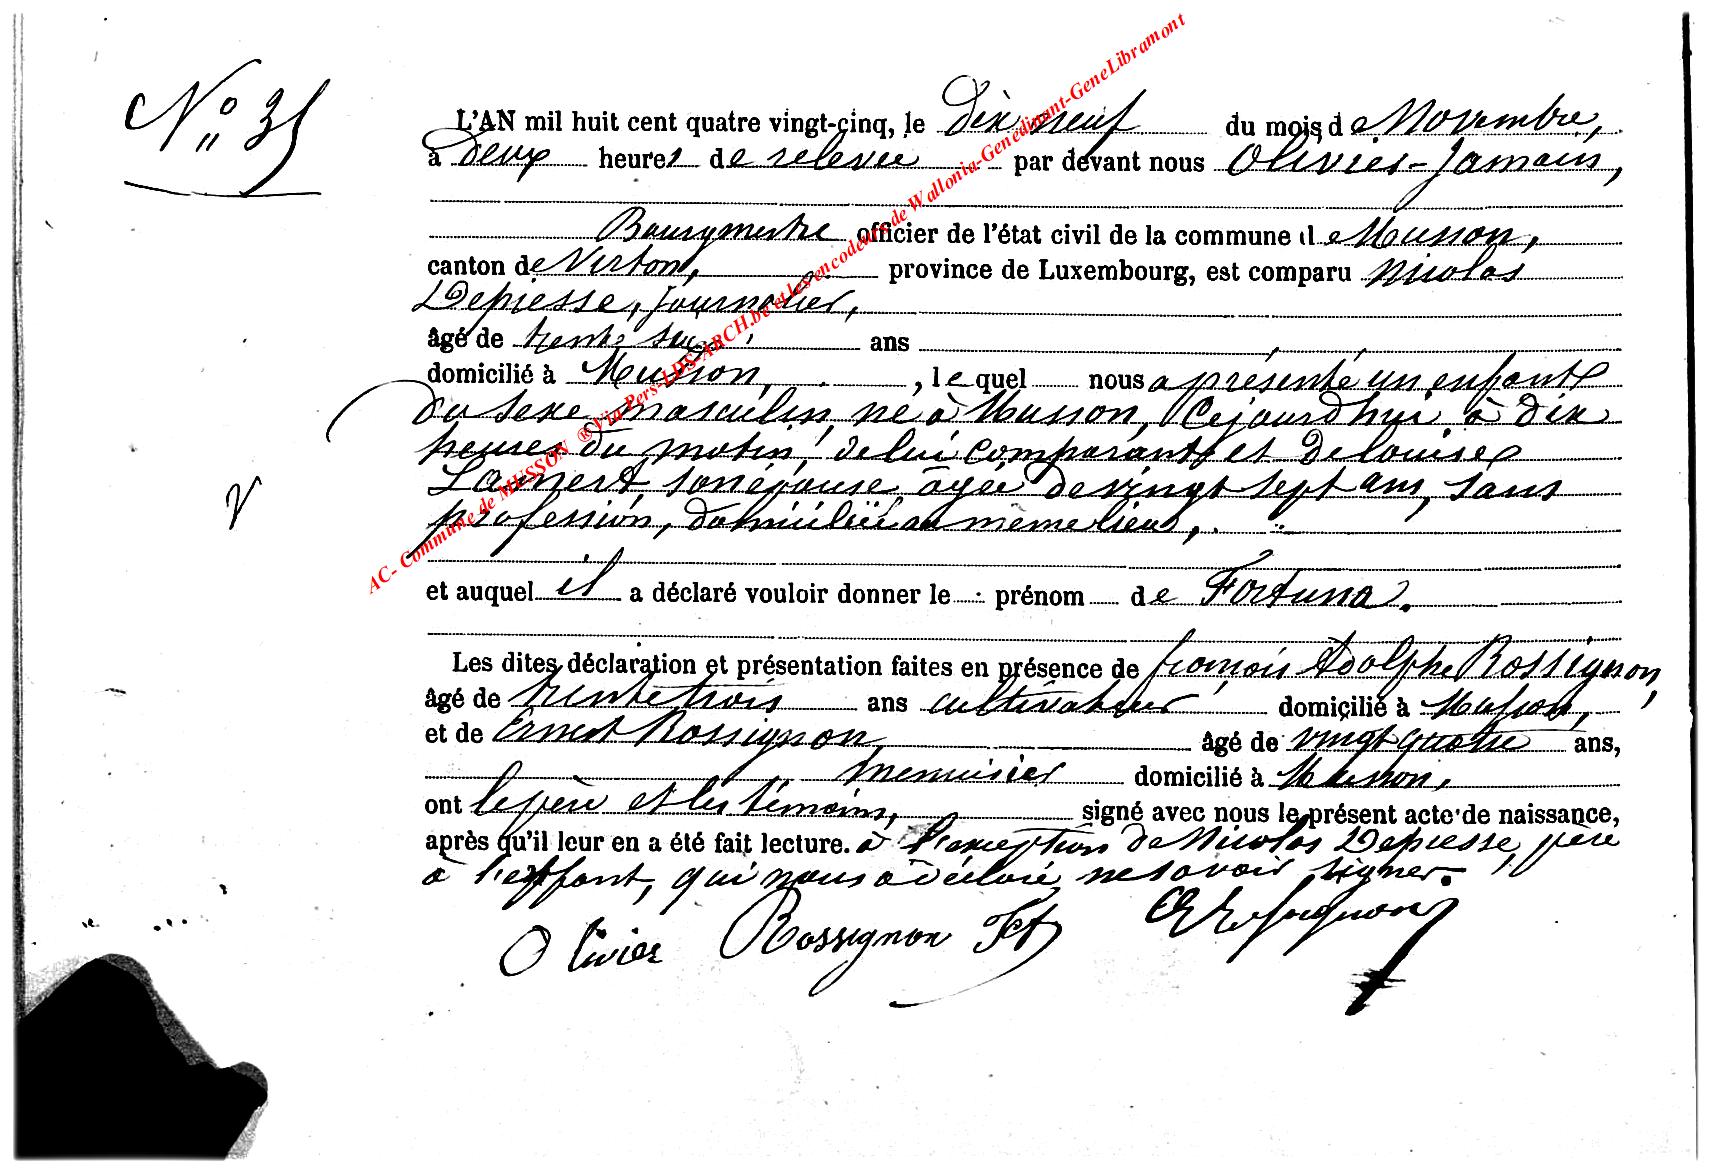 N° 35
L'AN mil huit cent quatre vingt-cinq, le Dix neuf du mois de Novembre,
à deux heures de relevée par devant nous Olivier-Jamain,
Bourgmestre officier de l'état civil de la commune de Musson,
canton de Virton, province de Luxembourg, est comparu Nicolas
Depiesse, journalier,
âgé de trente six ans
domicilié à Musson, , lequel nous a présenté un enfant
du sexe masculin, né à Musson, Cejourd'hui, à dix
heures du matin, de lui comparant et De louise
son épouse, âgée de vingt sept ans, sans
profession, domiciliée au même lieu,
et auquel il a déclaré vouloir donner le prénom de Fortuna.
Les dites déclaration et présentation faites en présence de françois Adolphe Rossignon,
âgé de trente trois ans cultivateur domicilié à Musson,
et de Ernest Rossignon, âgé de vingt quatre ans,
menuisier domicilié à Musson,
ont le père et les témoins, signé avec nous le présent acte de naissance,
après qu'il leur en a été fait lecture. à l'exception de Nicolas Depiesse, père
à l'enfant, qui nous a déclaré ne savoir signer.
Olivier Rossignon
AC- Commune de MUSSON ® Via Pers-LDS-ARCH.be et les encodeurs de Wallonia-Genedinant-GeneLibramont